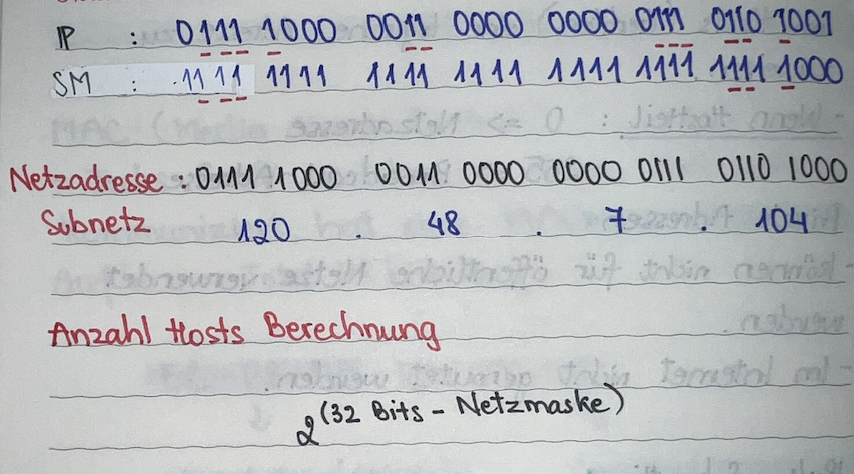 IP : 0111 1000 0011 0000 0000 0111 0110 1001
SM : 1111 1111 1111 1111 1111 1111 1111 1000
Netzadresse : 0111 1000 0011 0000 0000 0111 0110 1000
Subnetz 120 . 48 . 7 . 104
Anzahl Hosts Berechnung
2^(32 Bits - Netzmaske)